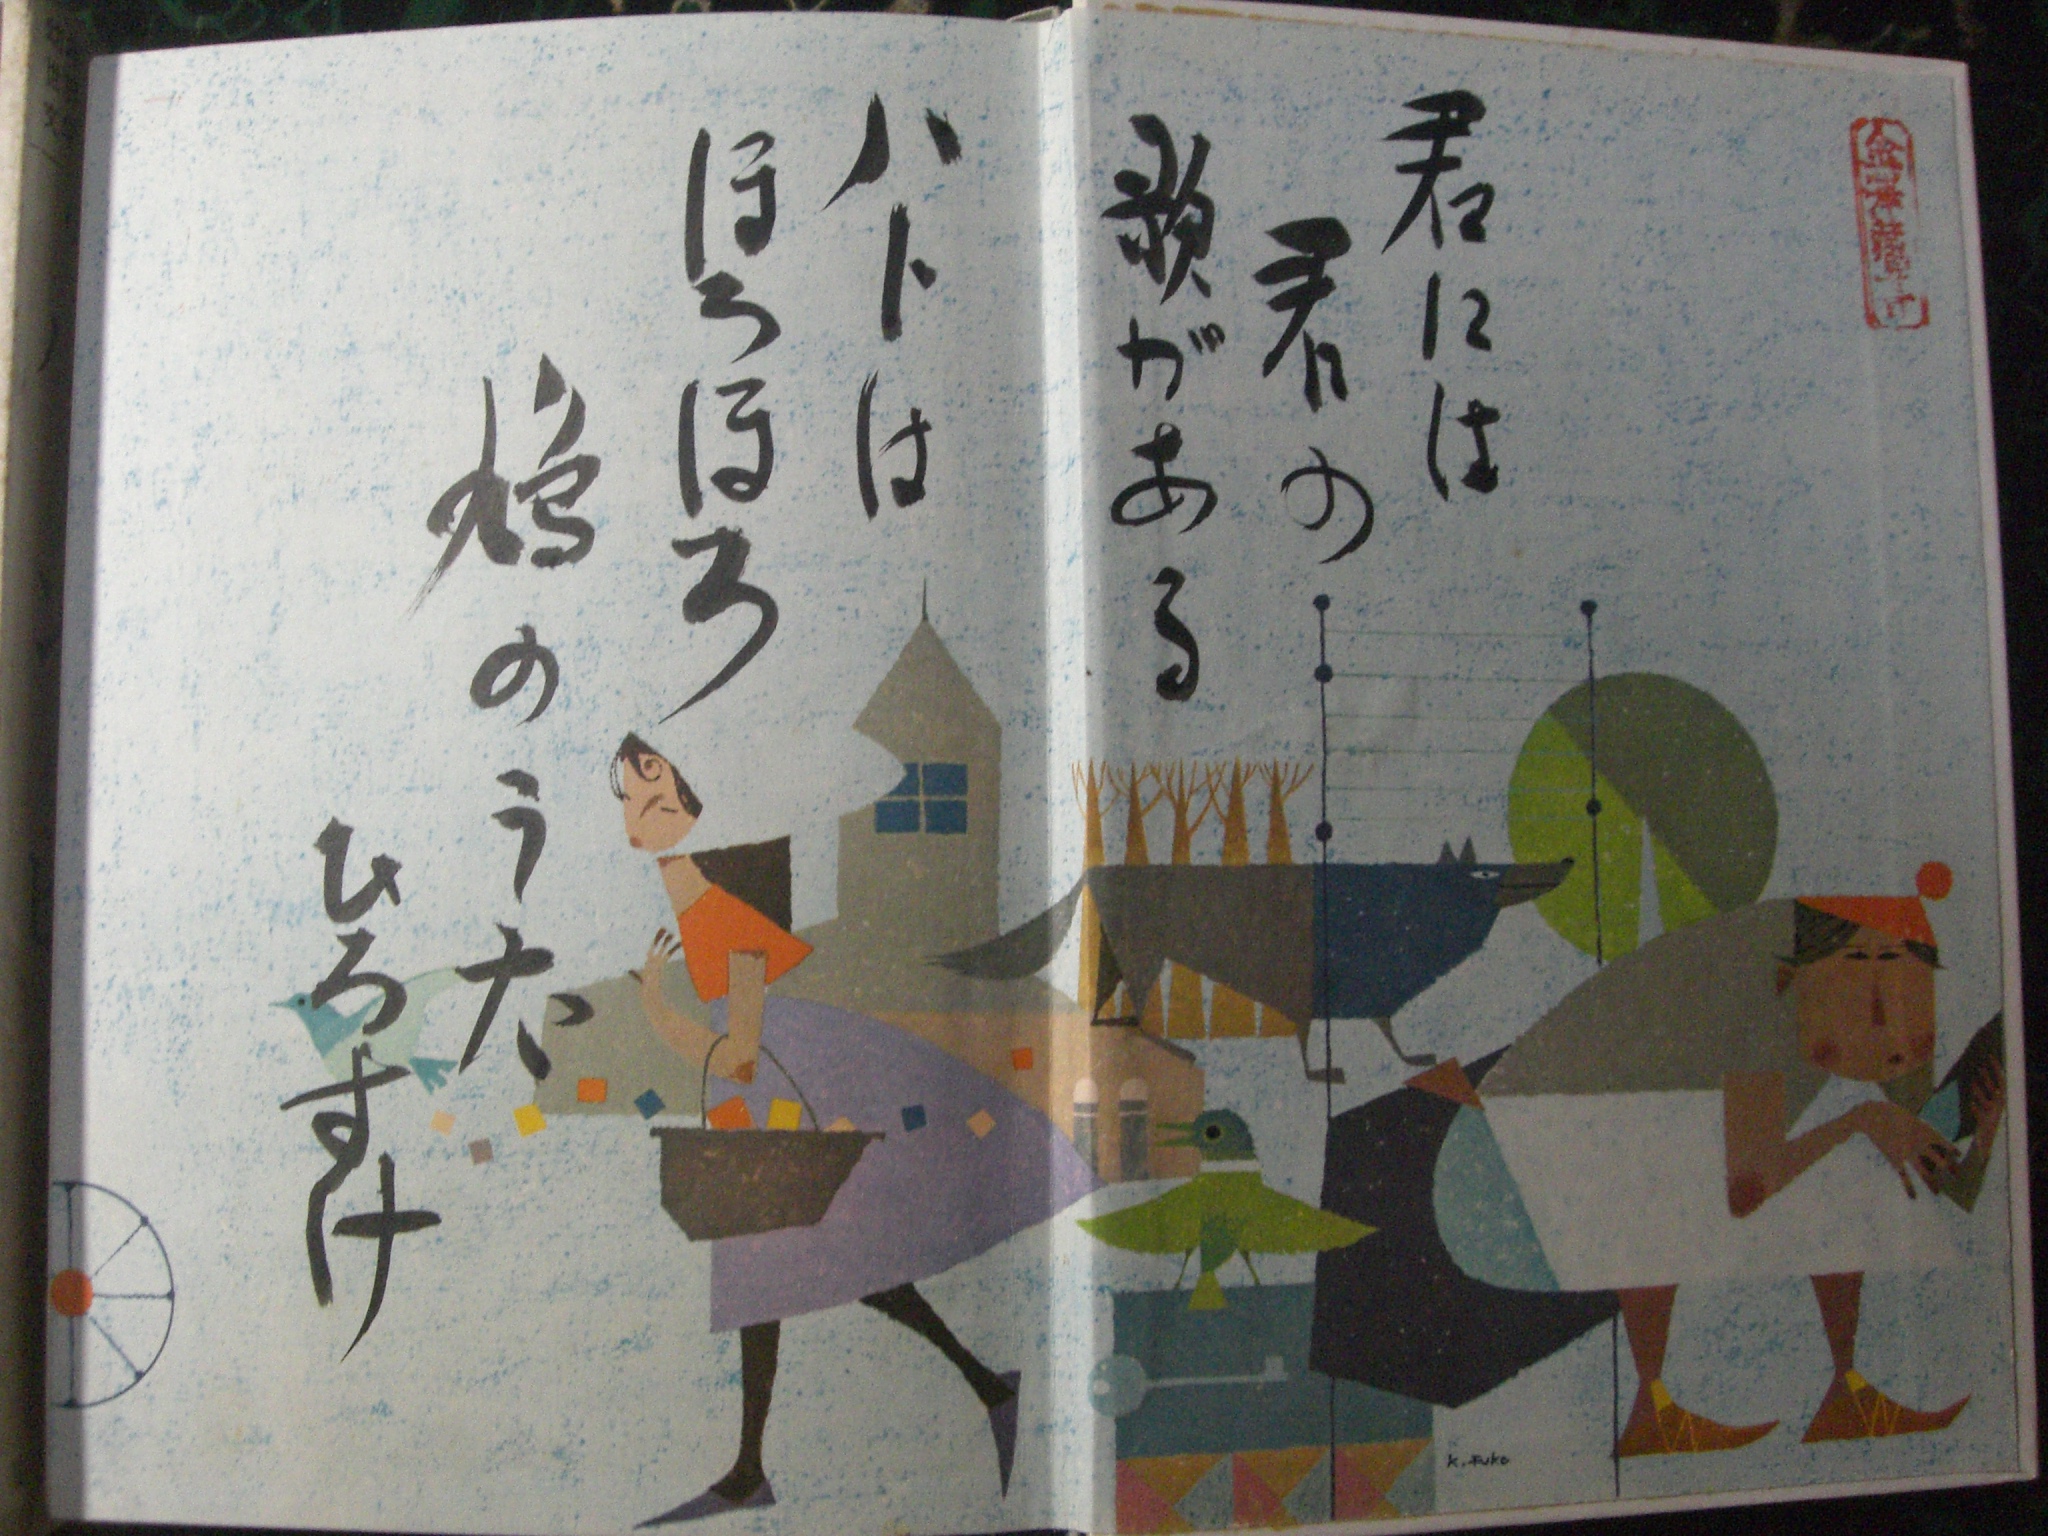 君には
君の
歌がある
ハトは
ほろほろ
鳩のうた
ひろすけ
K. Fuko